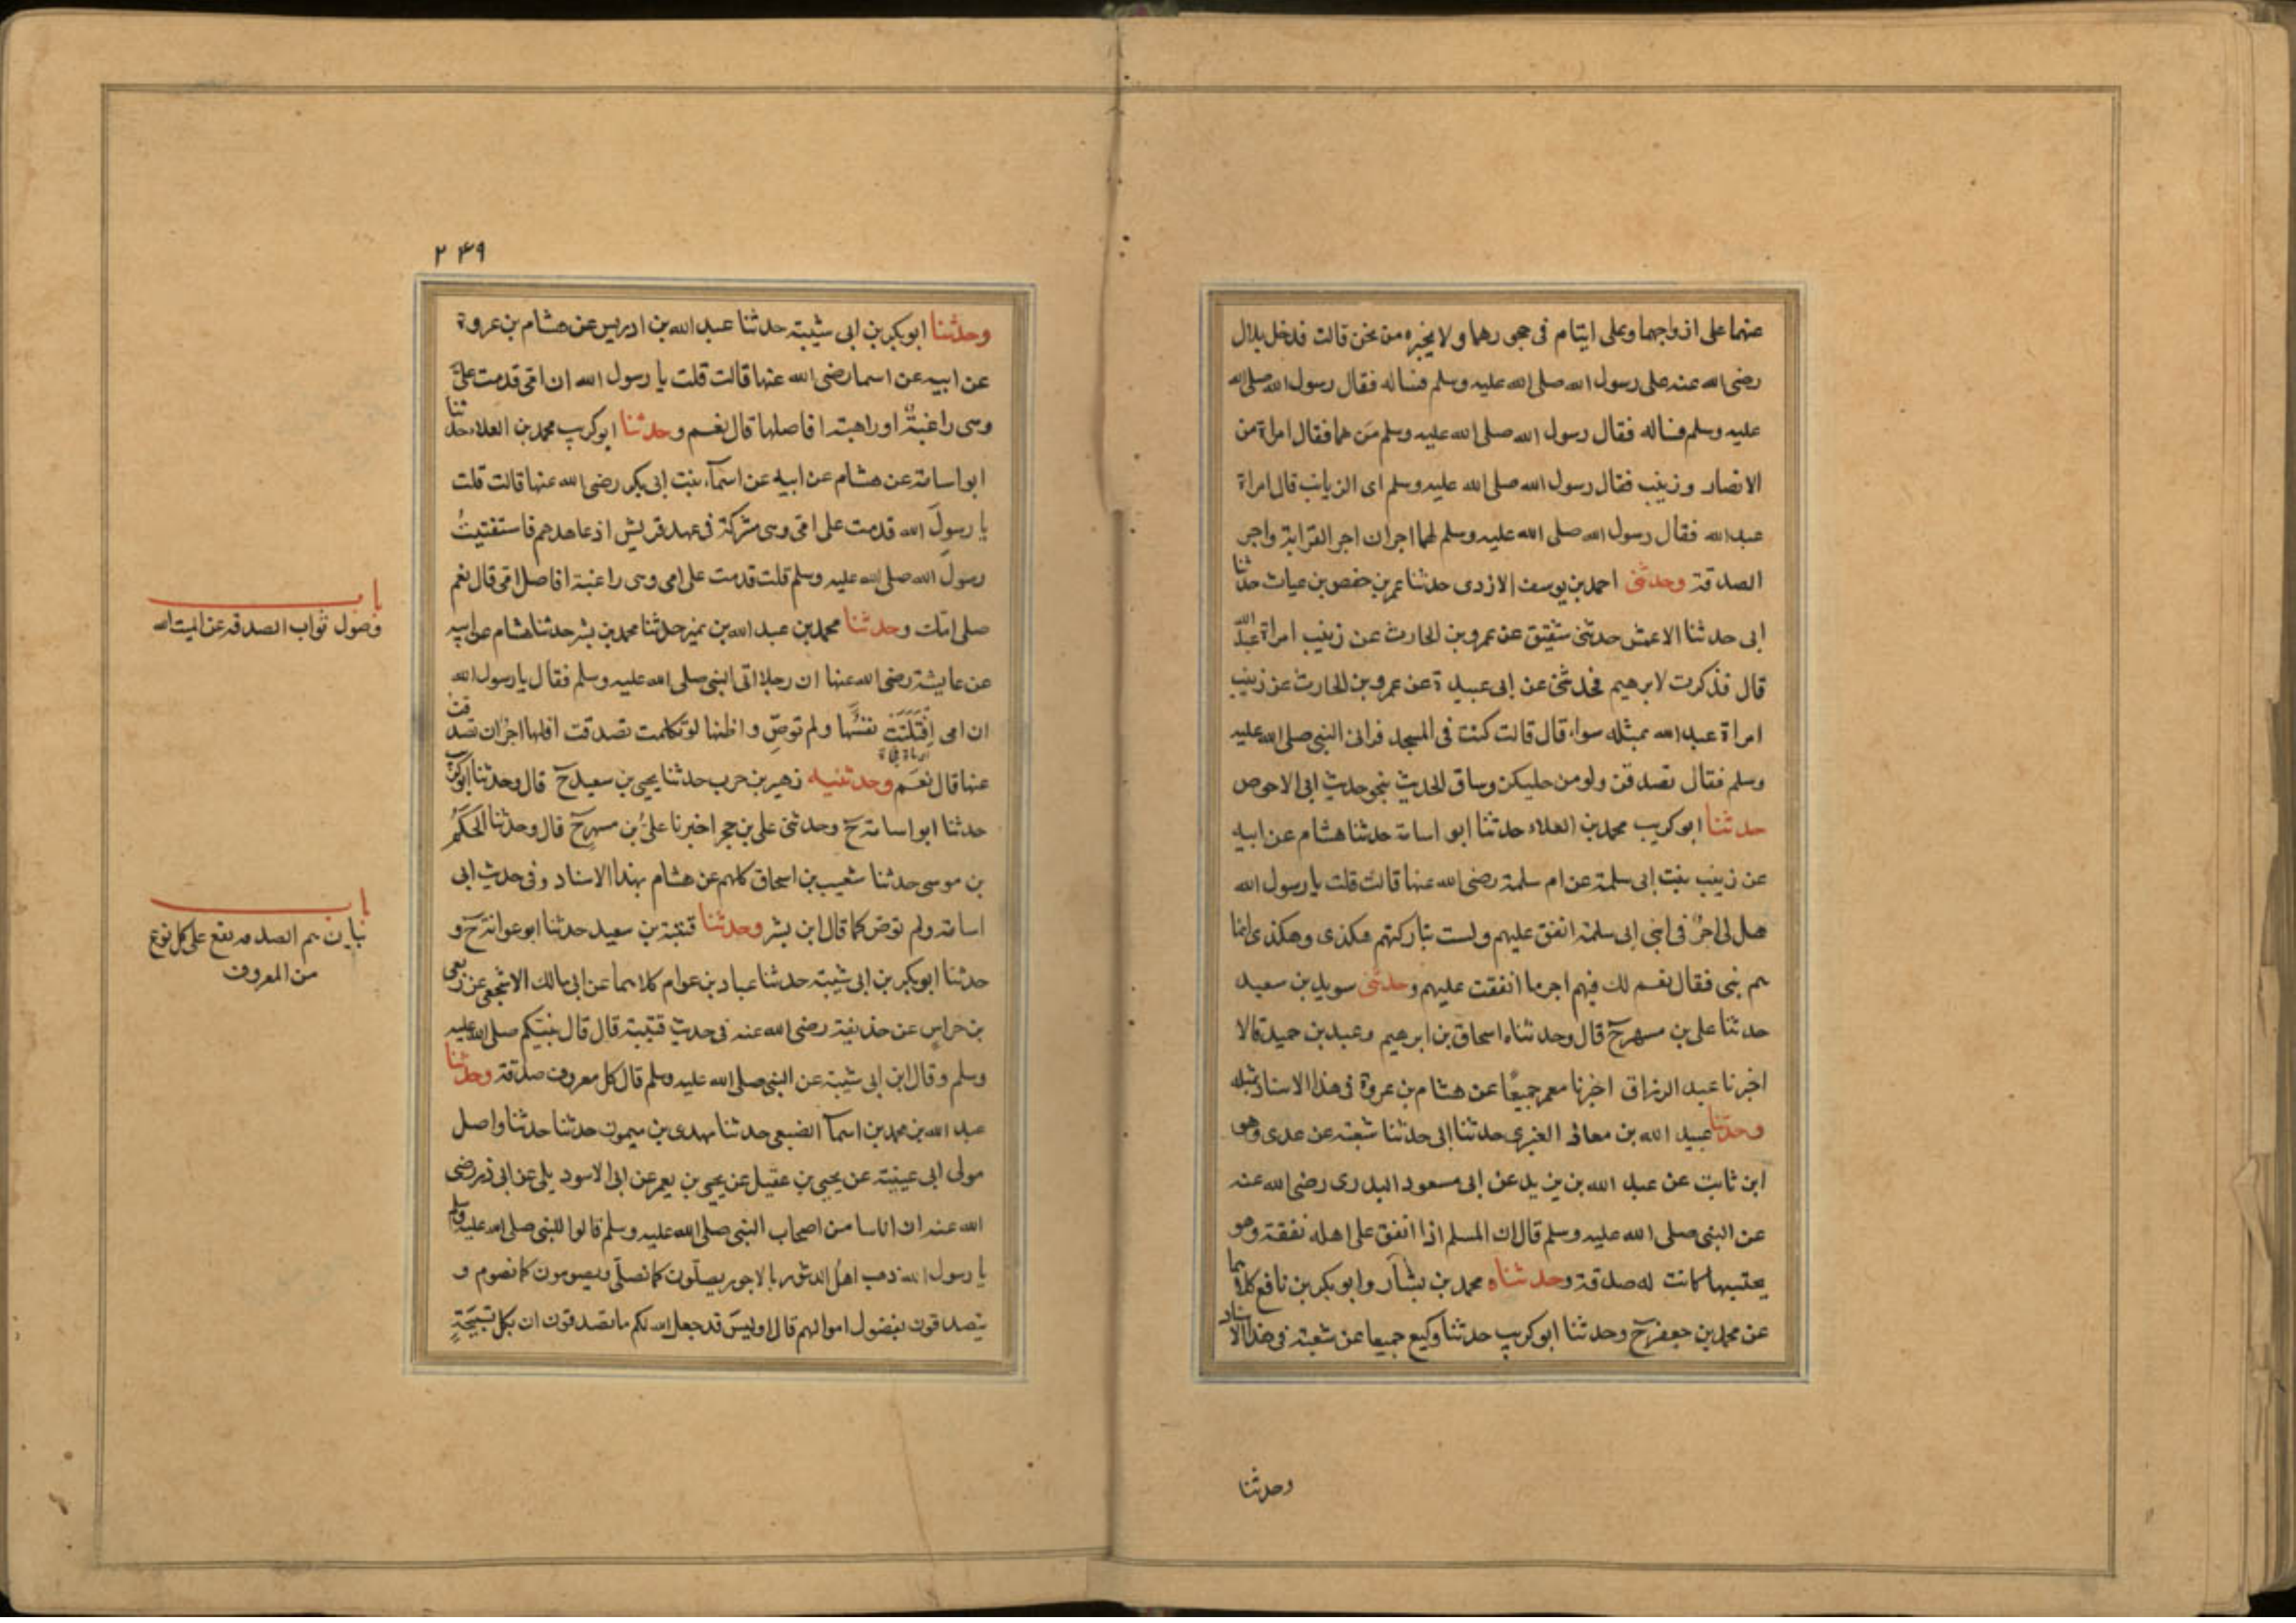 عنهما على ازواجهما وعلى ايتام فى حجورهما ولا يخبره من نحن قالت فدخل بلال
رضى الله عنه على رسول الله صلى الله عليه وسلم فساله فقال رسول الله صلى الله
عليه وسلم فساله فقال رسول الله صلى الله عليه وسلم من هما فقال امراة من
الانصار وزينب فقال رسول الله صلى الله عليه وسلم اى الزيانب قال امراة
عبد الله فقال رسول الله صلى الله عليه وسلم لهما اجران اجر القرابة واجر
الصدقة وحدثنى احمد بن يوسف الازدى حدثنا عمر بن حفص بن غياث حدثنا
ابى حدثنا الاعمش حدثنى شقيق عن عمرو بن الحارث عن زينب امراة عبد الله
قال فذكرت لابرهيم فحدثنى عن ابى عبيدة عن عمرو بن الحارث عن زينب
امراة عبد الله بمثله سواء قال قالت كنت فى المسجد فرانى النبى صلى الله عليه
وسلم فقال تصدقن ولو من حليكن وساق الحديث بنحو حديث ابى الاحوص
حدثنا ابو كريب محمد بن العلاء حدثنا ابو اسامة حدثنا هشام عن ابيه
عن زينب بنت ابى سلمة عن ام سلمة رضى الله عنها قالت قلت يا رسول الله
هل لى اجر فى ابنى ابى سلمة انفق عليهم ولست بتاركتهم هكذى وهكذى انما
هم بنى فقال نعم لك فيهم اجر ما انفقت عليهم وحدثنى سويد بن سعيد
حدثنا على بن مسهر ح قال وحدثناه اسحاق بن ابرهيم وعبد بن حميد قالا
اخبرنا عبد الرزاق اخبرنا معمر جميعًا عن هشام بن عروة فى هذا الاسناد بمثله
وحدثنا عبيد الله بن معاذ العنبرى حدثنا ابى حدثنا شعبة عن عدى وهو
ابن ثابت عن عبد الله بن يزيد عن ابى مسعود البدرى رضى الله عنه
عن النبى صلى الله عليه وسلم قال ان المسلم اذا انفق على اهله نفقة وهو
يحتسبها كانت له صدقة وحدثناه محمد بن بشار وابو بكر بن نافع كلاهما
عن محمد بن جعفر ح وحدثنا ابو كريب حدثنا وكيع جميعا عن شعبة فى هذا الاسناد
وحدثنا
٢٤٩
وحدثنا ابو بكر بن ابى شيبة حدثنا عبد الله بن ادريس عن هشام بن عروة
عن ابيه عن اسما رضى الله عنها قالت قلت يا رسول الله ان امى قدمت علىّ
وهى راغبةٌ او راهبة افاصلها قال نعم وحدثنا ابو كريب محمد بن العلاء حدثنا
ابو اسامة عن هشام عن ابيه عن اسمآء بنت ابى بكر رضى الله عنها قالت قلت
يا رسولَ الله قدمت على امى وهى مشركة فى عهد قريش اذ عاهدهم فاستفتيتُ
رسولَ الله صلى الله عليه وسلم قلت قدمت على امى وهى راغبة افاصل امى قال نعم
صلى امك وحدثنا محمد بن عبد الله بن نمير حدثنا محمد بن بشر حدثنا هشام عن ابيه
عن عايشة رضى الله عنها ان رجلا اتى النبى صلى الله عليه وسلم فقال يا رسول الله
ان امى اِفْتُلِتَتْ نفسُها ولم توصِّ واظنها لو تكلمت تصدقت افلها اجرٌ ان تصدقت
عنها قال نعم وحدثنيه زهير بن حرب حدثنا يحيى بن سعيد ح قال وحدثنا ابو كريب
حدثنا ابو اسامة ح وحدثنى على بن حجر اخبرنا علىُّ بن مسهر ح قال وحدثنا الحكمُ
بن موسى حدثنا شعيب بن اسحاق كلهم عن هشام بهذا الاسناد وفى حديث ابى
اسامة ولم توص كما قال ابن بشر وحدثنا قتيبة بن سعيد حدثنا ابو عوانة ح و
حدثنا ابو بكر بن ابى شيبة حدثنا عباد بن عوام كلاهما عن ابى مالك الاشجعى عن ربعى
بن حراس عن حذيفة رضى الله عنه فى حديث قتيبة قال قال نبيكم صلى الله عليه
وسلم وقال ابن ابى شيبة عن النبى صلى الله عليه وسلم قال كل معروف صدقة وحدثنا
عبد الله بن محمد بن اسمآ الضبعى حدثنا مهدى بن ميمون حدثنا حدثنا واصل
مولى ابى عيينة عن يحيى بن عقيل عن يحيى بن يعمر عن ابى الاسود يلى عن ابى ذر رضى
الله عنه ان اناسا من اصحاب النبى صلى الله عليه وسلم قالوا للنبى صلى الله عليه وسلم
يا رسول الله ذهب اهلُ الدثور بالاجور يصلّون كما نصلّى ويصومون كما نصوم و
يتصدقون بفضول اموالهم قال اوليسَ قد جعل الله لكم ما تصدقون ان بكل تسبيحَةٍ
باب
وصول ثواب الصدقة عن الميت اليه
باب
بيان اسم الصدقه يقع على كل نوع
من المعروف